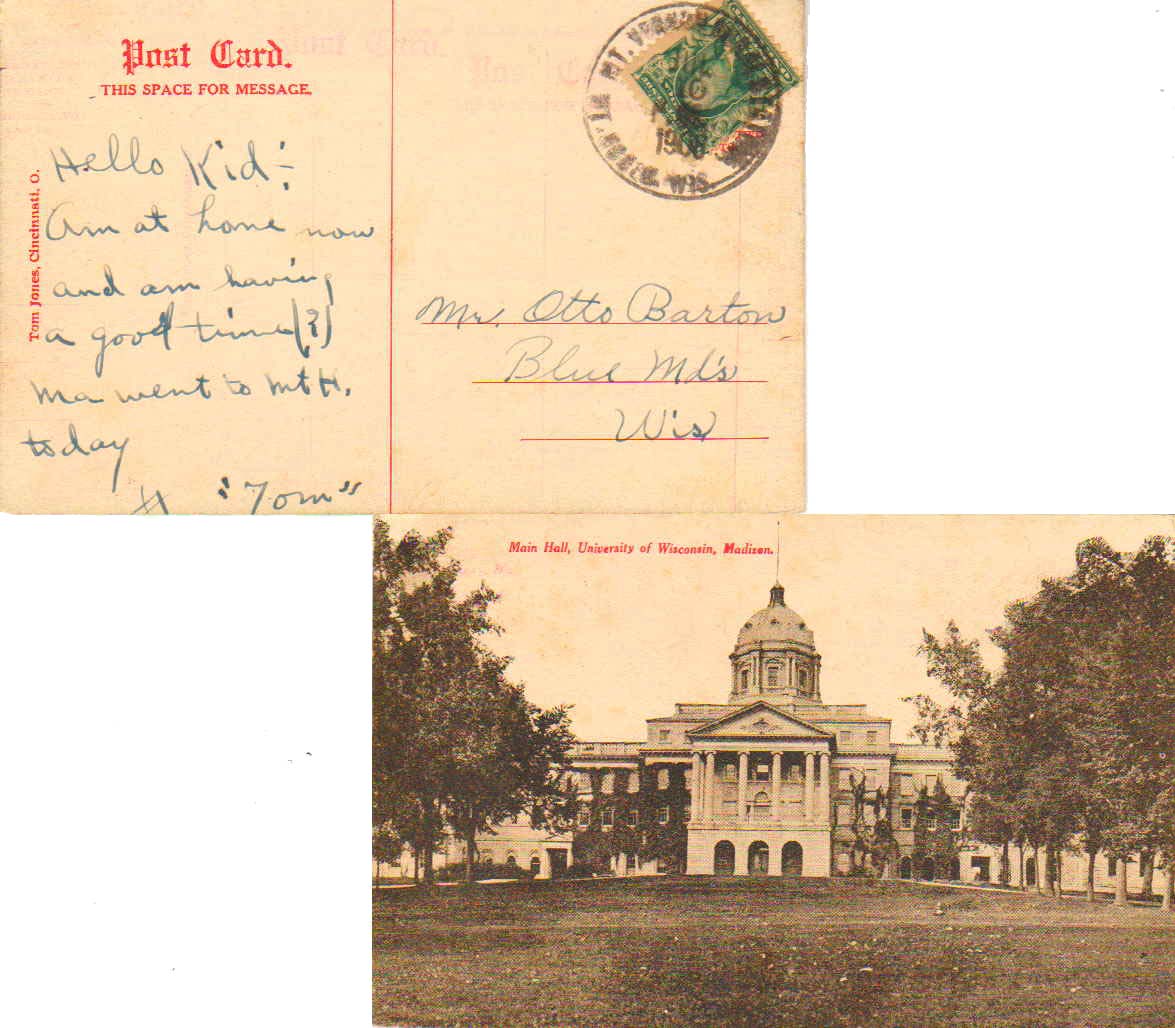 Post Card.
THIS SPACE FOR MESSAGE.
Tom Jones, Cincinnati, O.
Hello Kid:-
Am at home now
and am having
a good time(?)
Ma went to Mt H.
today
"Tom"
MT. VERNON
1908
Mr. Otto Barton
Blue Md's
Wis
Main Hall, University of Wisconsin, Madison.